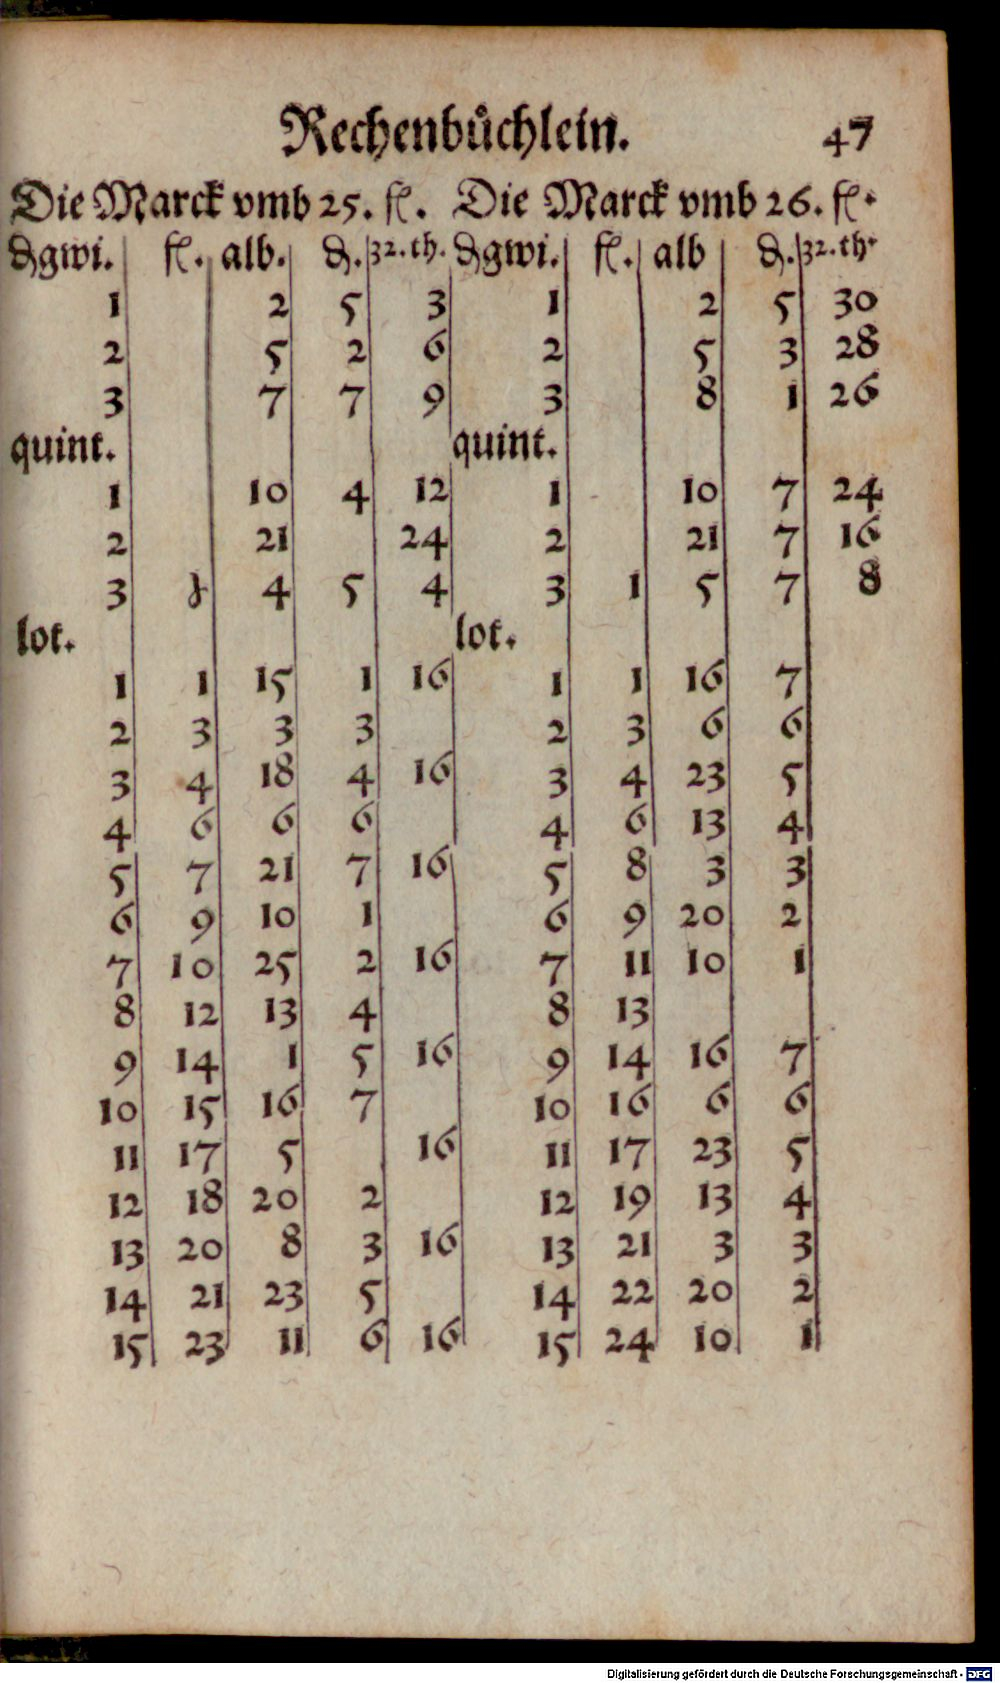 Rechenbuͤchlein. 47
Die Marck vmb 25. fl. Die Marck vmb 26. fl.
₰gwi. fl. alb. ₰. 32.th. ₰gwi. fl. alb ₰. 32.th.
1 2 5 3 1 2 5 30
2 5 2 6 2 5 3 28
3 7 7 9 3 8 1 26
quint. quint.
1 10 4 12 1 10 7 24
2 21 24 2 21 7 16
3 1 4 5 4 3 1 5 7 8
lot. lot.
1 1 15 1 16 1 1 16 7
2 3 3 3 2 3 6 6
3 4 18 4 16 3 4 23 5
4 6 6 6 4 6 13 4
5 7 21 7 16 5 8 3 3
6 9 10 1 6 9 20 2
7 10 25 2 16 7 11 10 1
8 12 13 4 8 13
9 14 1 5 16 9 14 16 7
10 15 16 7 10 16 6 6
11 17 5 16 11 17 23 5
12 18 20 2 12 19 13 4
13 20 8 3 16 13 21 3 3
14 21 23 5 14 22 20 2
15 23 11 6 16 15 24 10 1
Digitalisierung gefördert durch die Deutsche Forschungsgemeinschaft - DFG